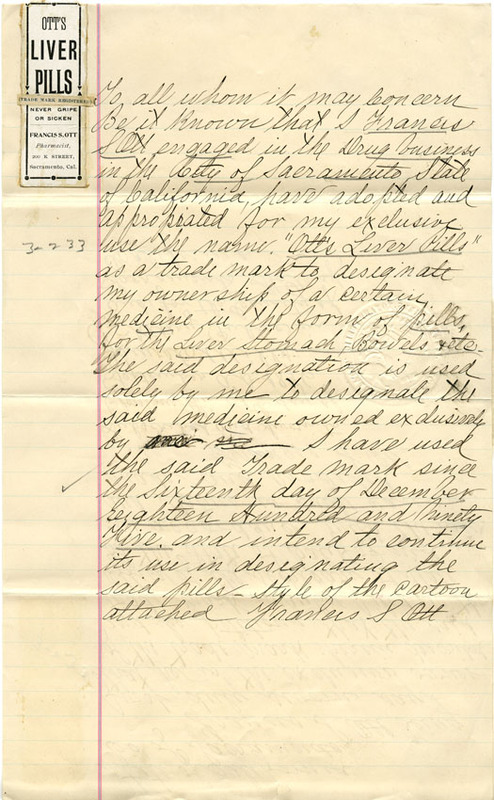 OTT'S
LIVER
PILLS
TRADE MARK REGISTERED
NEVER GRIPE
OR SICKEN
FRANCIS S. OTT
Pharmacist,
200 K STREET,
Sacramento, Cal.
To all whom it may Concern
Be it Known that I Francis
S Ott engaged in the Drug business
in the City of Sacramento, State
of California, have adopted and
appropriated for my exclusive
use the name. "Ott's Liver Pills"
as a trade mark to designate
my ownership of a certain
medicine in the form of pills,
for the Liver Stomach, Bowels etc.
The said designation is used
solely by me to designate the
said medicine owned exclusively
by I have used
the said Trade mark since
the Sixteenth day of December
Eighteen Hundred and Ninety
Five. and intend to continue
its use in designating the
said pills - Style of the Cartoon
attached Francis S Ott